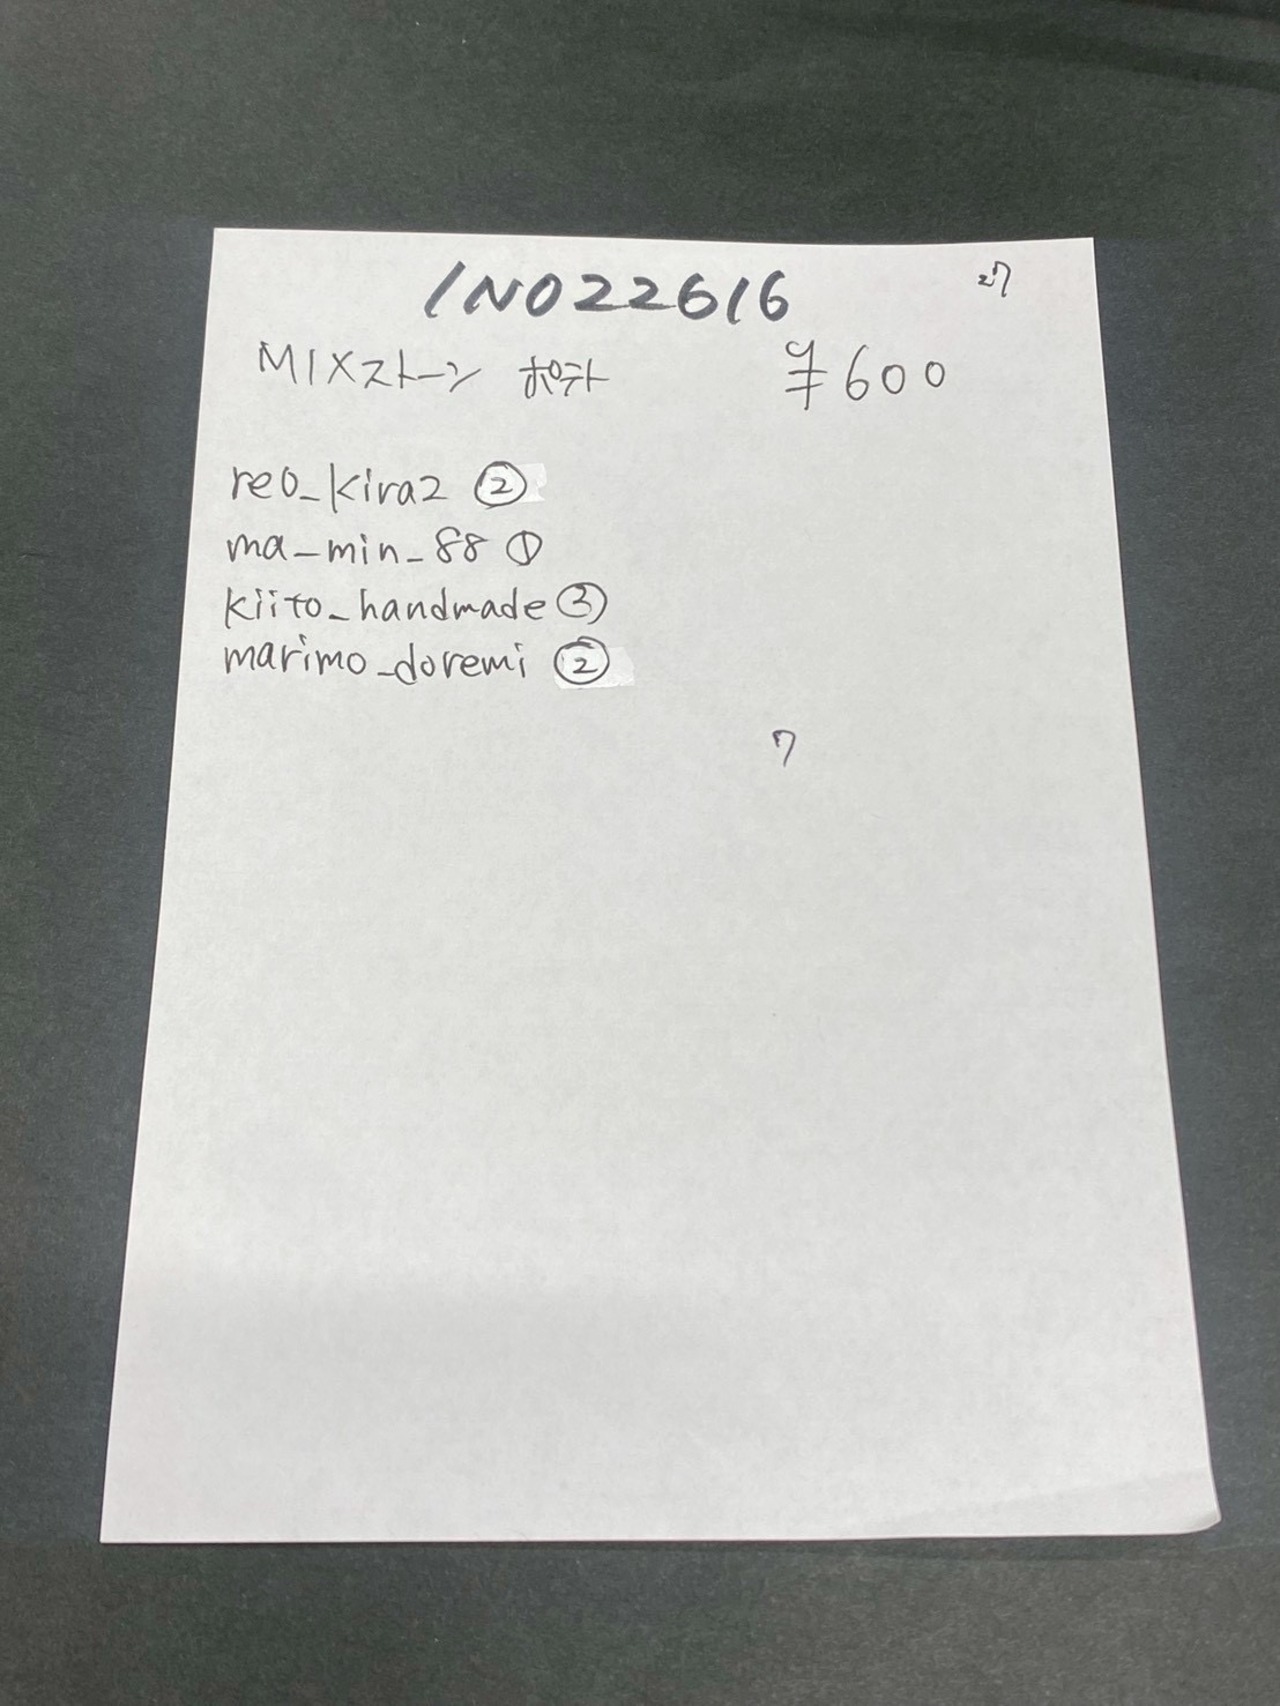 INO22616 27
MIXストーン ポテト ¥600
reo_kira2 ②
ma_min_88 ①
kiito_handmade ③
marimo_doremi ②
7